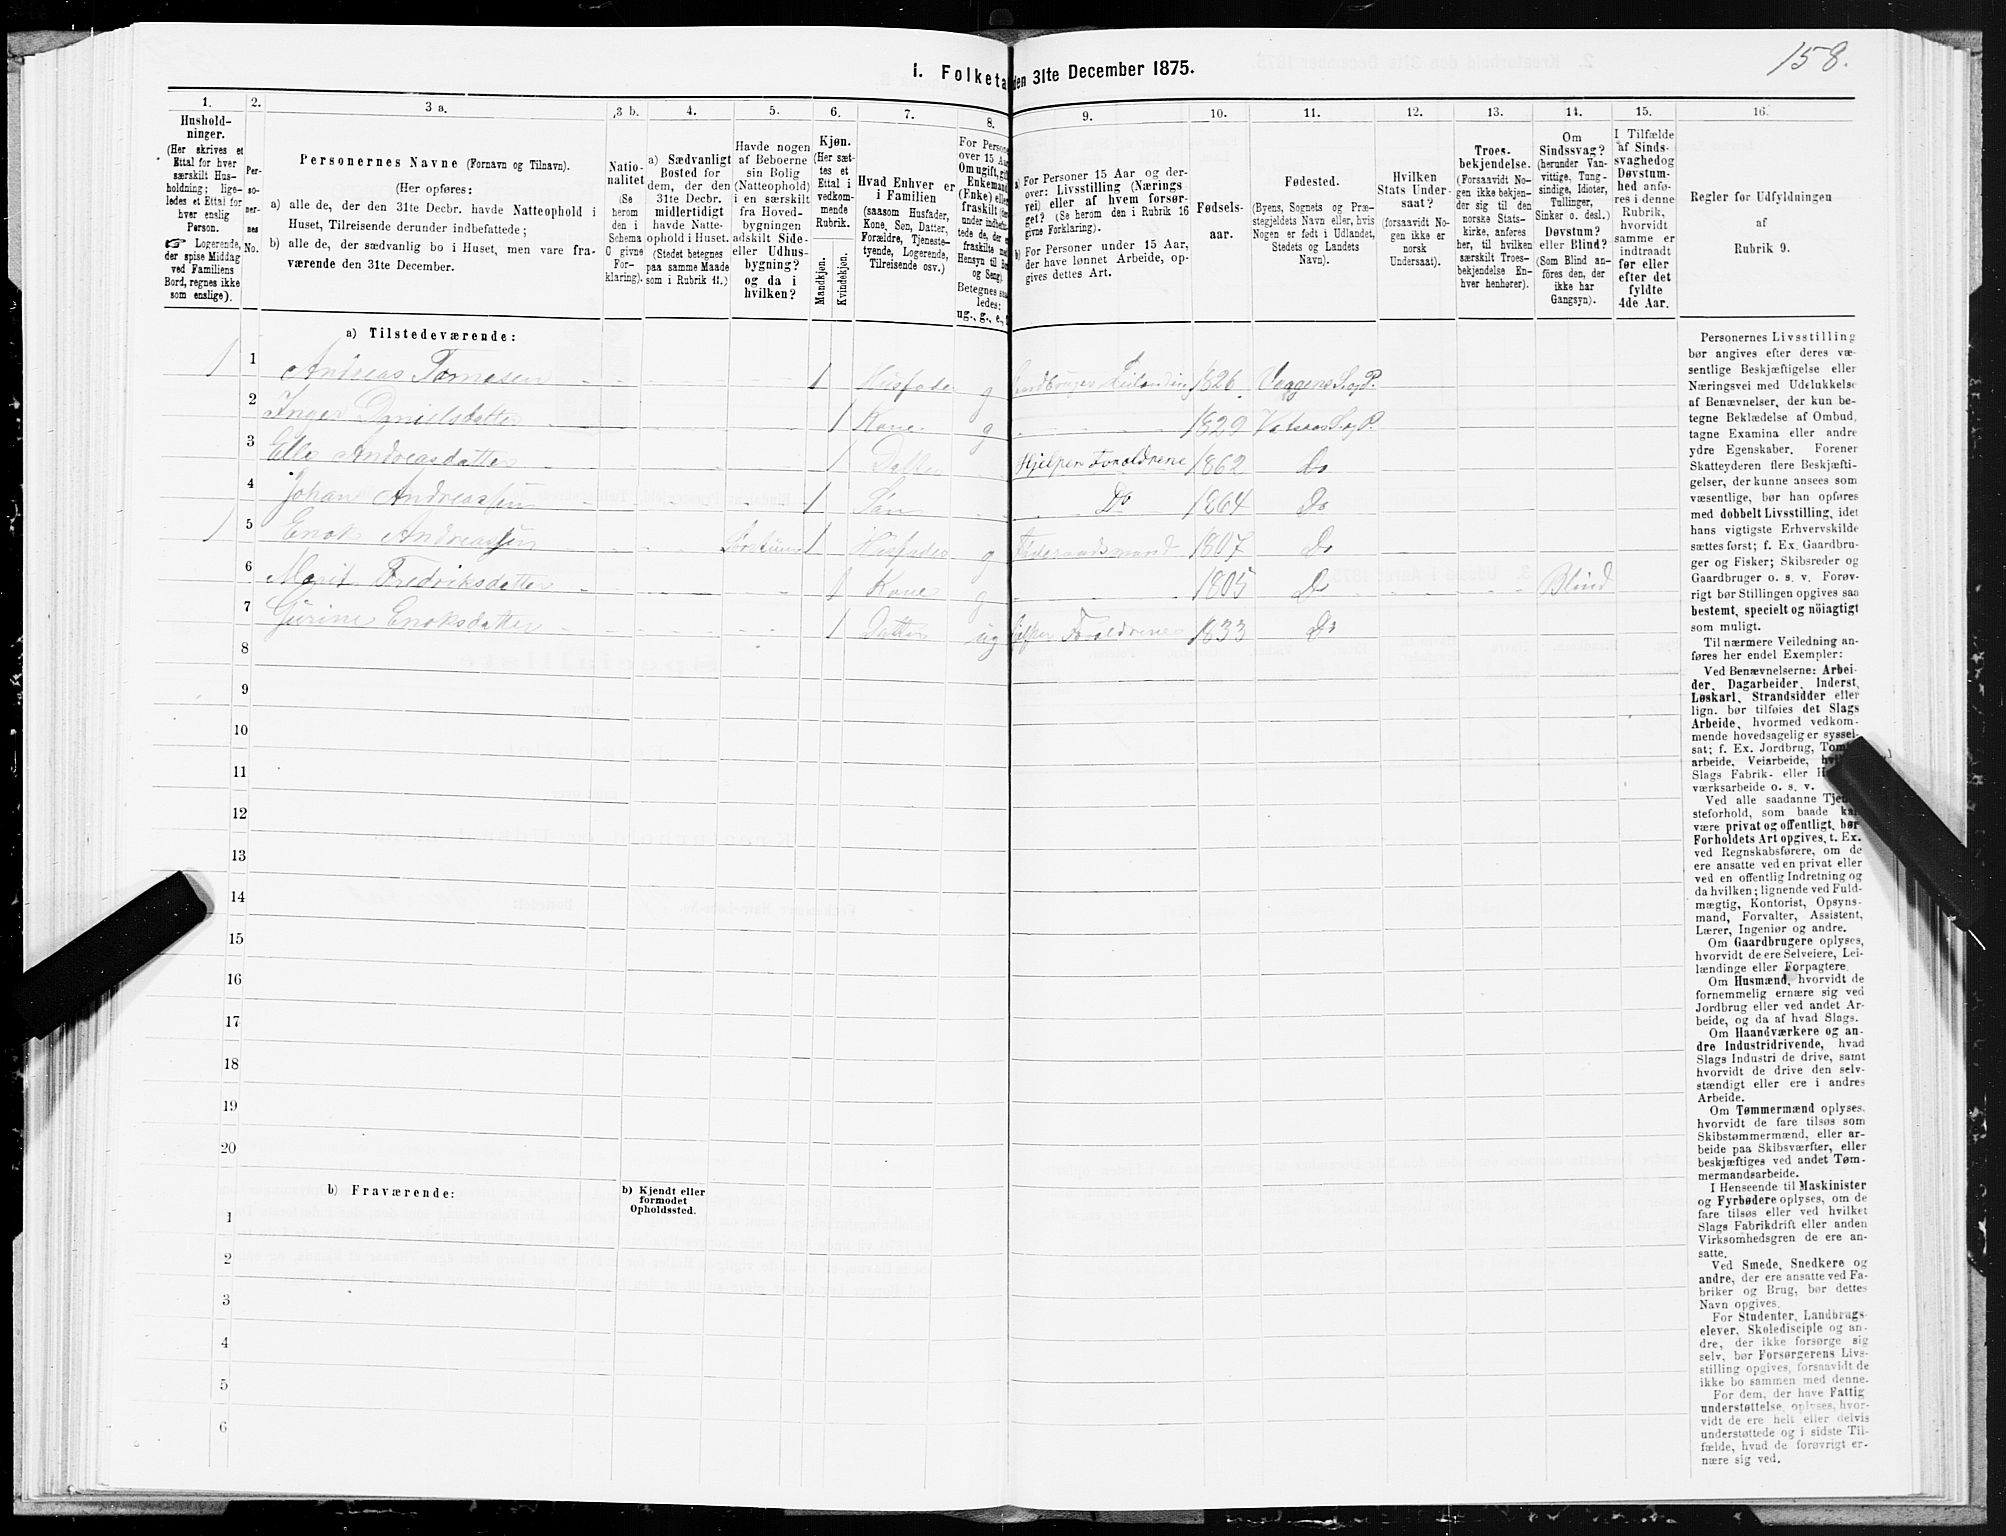 158.
i. Folketa
den 31te December 1875.
1. 2. 3 a. 3 b. 4. 5. 6. 7. 8. 9. 10. 11. 12. 13. 14. 15. 16.
Hushold-
ninger.
(Her skrives et
Ettal for hver
særskilt Hus-
holdning; lige-
ledes et Ettal for
hver enslig
Person.
☞ Logerende,
der spise Middag
ved Familiens
Bord, regnes ikke
som enslige).
Per-
so-
ner-
nes
No.
Personernes Navne (Fornavn og Tilnavn).
(Her opføres:
a) alle de, der den 31te Decbr. havde Natteophold i
Huset, Tilreisende derunder indbefattede;
b) alle de, der sædvanlig bo i Huset, men vare fra-
værende den 31te December.
Natio-
nalitet
(Se
herom
den i
Schema
O givne
For-
klaring).
a) Sædvanligt
Bosted for
dem, der den
31te Decbr.
midlertidigt
havde Natte-
ophold i Huset.
(Stedet betegnes
paa samme Maade
som i Rubrik 11.)
Havde nogen
af Beboerne
sin Bolig
(Natteophold)
i en særskilt
fra Hoved-
bygningen
adskilt Side-
eller Udhus-
bygning?
og da i
hvilken?
Kjøn.
(Her sæt-
tes et
Ettal i
vedkom-
mende
Rubrik.
Mandkjøn.
Kvindekjøn.
Hvad Enhver er
i Familien
(saasom Husfader,
Kone, Søn, Datter,
Forældre, Tjeneste-
tyende, Logerende,
Tilreisende osv.)
For Persone
over 15 Aar
Om ugift, gift
Enkemand
(Enke) eller
fraskilt
under indbefat-
tede de, der
fraskilte med
Hensyn til Bo
og Seng).
Betegnes saa-
ledes:
ug., g., e.,
a) For Personer 15 Aar og der-
over: Livsstilling (Nærings-
vei) eller af hvem forsør-
get? (Se herom den i Rubrik 16
givne Forklaring).
b) For Personer under 15 Aar,
der have lønnet Arbeide, op-
gives dettes Art.
Fødsels-
aar.
Fødested.
(Byens, Sognets og Præ-
stegjeldets Navn eller, hvis
Nogen er født i Udlandet,
Stedets og Landets
Navn).
Hvilken
Stats Under-
saat?
(forsaavidt No-
gen ikke er
norsk
Undersaat).
Troes-
bekjendelse.
(Forsaavidt No-
gen ikke bekjen-
der sig til den
norske Stats-
kirke, anføres
her, til hvilken
særskilt Troes-
bekjendelse En-
hver henhører).
Om
Sindssvag?
(herunder Van-
vittige, Tung-
sindige, Idioter,
Tullinger,
Sinker o. desl.)
Døvstum?
eller Blind?
(Som Blind an-
føres den, der
ikke har
Gangsyn).
I Tilfælde
af Sinds-
svaghed og
Døvstum-
hed anfø-
res i denne
Rubrik,
hvorvidt
samme er
indtraadt
før eller
efter det
fyldte
4de Aar.
Regler for Udfyldningen
af
Rubrik 9.
a) Tilstedeværende:
1 1 Andreas Tomesen 1 Husfader g 1826 S. og P.
2 Inger Danielsdatter 1 Kone g 1829 S. og P.
3 Elle Andreasdatter 1 Datter Hjelper Foreldrene 1862 Do
4 Johan Andreassen 1 Søn Do 1864 Do
1 5 Enok Andreassen 1 Husfader g Føderaadsmand 1807 Do
6 Marit Fredriksdatter 1 Kone g 1805 Do Blind
7 Gurine Enoksdatter 1 Datter ug Hjelper Foreldrene 1833 Do
8
9
10
11
12
13
14
15
16
17
18
19
20
b) Fraværende:
b) Kjendt eller
formodet
Opholdssted.
1
2
3
4
5
6
Personernes Livsstilling
bør angives efter deres væ-
sentlige Beskjæftigelse eller
Næringsvei med Udelukkelse
af Benævnelser, der kun be-
tegne Beklædelse af Ombud,
tagne Examina eller andre
ydre Egenskaber. Forener
Skatteyderen flere Beskjæfti-
gelser, der kunne ansees som
væsentlige, bør han opføres
med dobbelt Livsstilling, idet
hans vigtigste Erhvervskilde
sættes først; f. Ex. Gaardbru-
ger og Fisker; Skibsreder og
Gaardbruger o. s. v. Forøv-
rigt bør Stillingen opgives saa
bestemt, specielt og nöiagtigt
som muligt.
Til nærmere Veiledning an-
føres her endel Exempler:
Ved Benævnelserne: Arbei-
der, Dagarbeider, Inderst,
Løskarl, Strandsidder eller
lign. bør tilføies det Slags
Arbeide, hvormed vedkom-
mende hovedsagelig er syssel-
sat; f. Ex. Jordbrug, Tom
arbeide, Veiarbeide, hvil
Slags Fabrik- eller H
værksarbeide o. s. v.
Ved alle saadanne Tjen
steforhold, som baade kan
være privat og offentligt, bør
Forholdets Art opgives, t. Ex.
ved Regnskabsførere, om de
ere ansatte ved en privat eller
ved en offentlig Indretning og
da hvilken; lignende ved Fuld-
mægtig, Kontorist, Opsyns-
mand, Forvalter, Assistent,
Lærer, Ingeniør og andre.
Om Gaardbrugere oplyses,
hvorvidt de ere Selveiere, Lei-
lændinge eller Forpagtere.
Om Husmænd, hvorvidt de
fornemmelig ernære sig ved
Jordbrug eller ved andet Ar-
beide, og da af hvad Slags.
Om Haandværkere og an-
dre Industridrivende, hvad
Slags Industri de drive, samt
hvorvidt de drive den selv-
stændigt eller ere i andres
Arbeide.
Om Tømmermænd oplyses,
hvorvidt de fare tilsøs som
Skibstømmermænd, eller ar-
beide paa Skibsværfter, eller
beskjæftiges ved andet Tøm-
mermandsarbeide.
I Henseende til Maskinister
og Fyrbødere oplyses, om de
fare tilsøs eller ved hvilket
Slags Fabrikdrift eller anden
Virksomhedsgren de ere an-
satte.
Ved Smede, Snedkere og
andre, der ere ansatte ved Fa-
briker og Brug, bør dettes
Navn opgives.
For Studenter, Landbrugs-
elever, Skoledisciple og an-
dre, der ikke forsørge sig
selv, bør Forsørgerens Livs-
stilling opgives, forsaavidt de
ikke bo sammen med denne.
For dem, der have Fattig
understøttelse, oplyses, hvor-
vidt de ere helt eller delvis
understøttede og i sidste Til-
fælde, hvad de forøvrigt er-
nære sig ved.